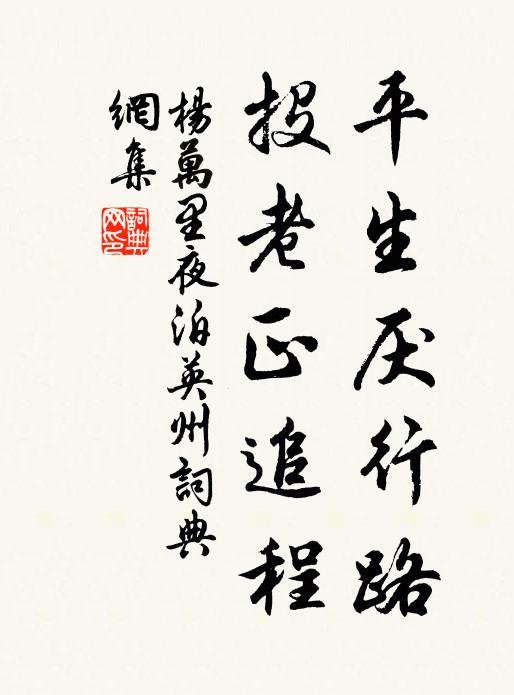 平生厌行路
投老正追程
楊萬里夜泊英州詞典
網集
詞典網印